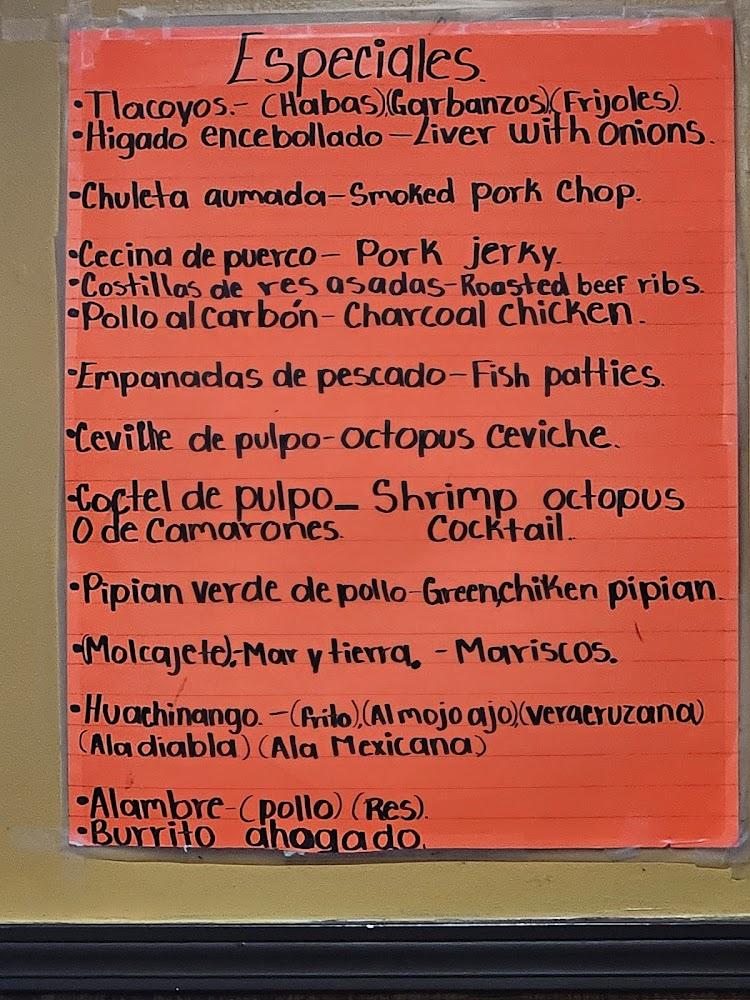 Especiales.
•Tlacoyos.- (Habas)(Garbanzos)(Frijoles).
•Higado encebollado-Liver with onions.
•Chuleta aumada-Smoked pork chop.
•Cecina de puerco- Pork jerky.
•Costillas de res asadas-Roasted beef ribs.
•Pollo al carbón- Charcoal chicken.
•Empanadas de pescado-Fish patties.
•Ceviche de pulpo-octopus ceviche.
•Coctel de pulpo_ Shrimp octopus
O de Camarones. Cocktail.
•Pipian verde de pollo-Green,chiken pipian.
•(Molcajete).-Mar y tierra. - Mariscos.
•Huachinango.-(frito),(Al mojo ajo)(veracruzana)
(Ala diabla) (Ala Mexicana)
•Alambre-(pollo) (Res).
•Burrito ahogado.